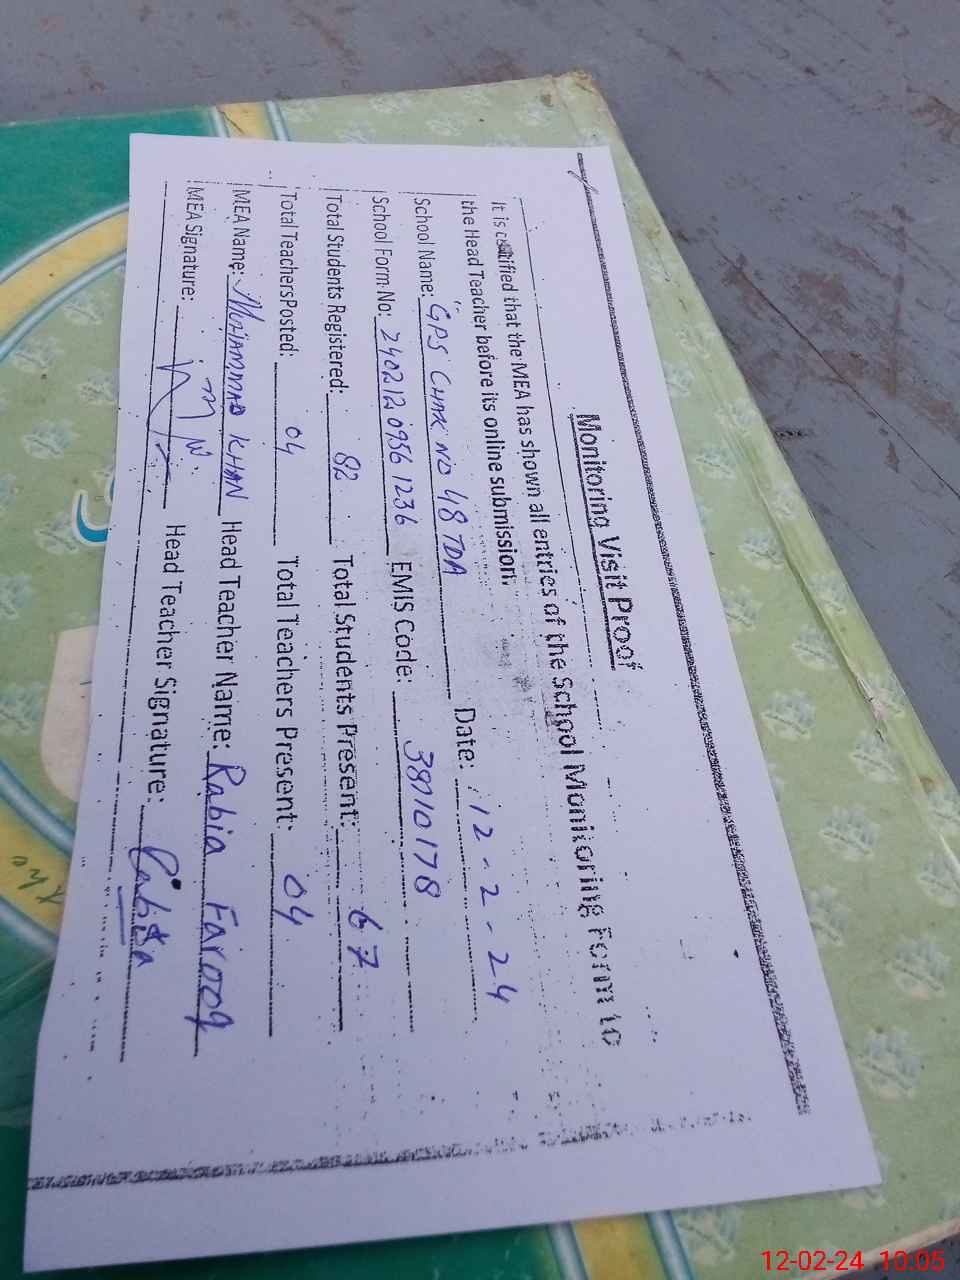 Monitoring Visit Proof
It is certified that the MEA has shown all entries of the School Monitoring Form to
the Head Teacher before its online submission.
School Name: GPS CHAK NO 48 TDA Date: 12-2-24
School Form No: 24021209561236 EMIS Code: 38010178
Total Students Registered: 82 Total Students Present: 67
Total Teachers Posted: 04 Total Teachers Present: 04
MEA Name: MOHAMMAD KHAN Head Teacher Name: Rabia Farooq
MEA Signature: Head Teacher Signature: Rabia
the
12-02-24 10:05